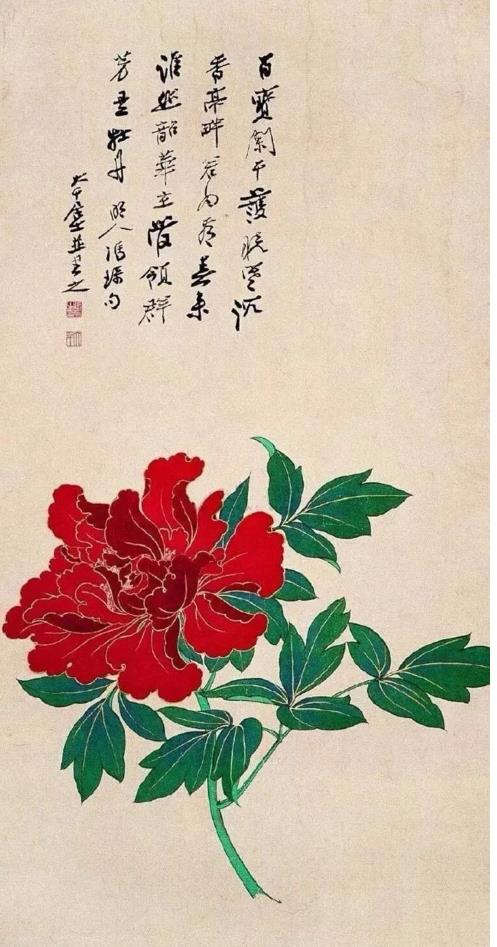 百寶闌干護曉寒沉
香亭畔若為看春來
誰作韶華主總領群
芳是牡丹 明人馮琢句
大千並書之